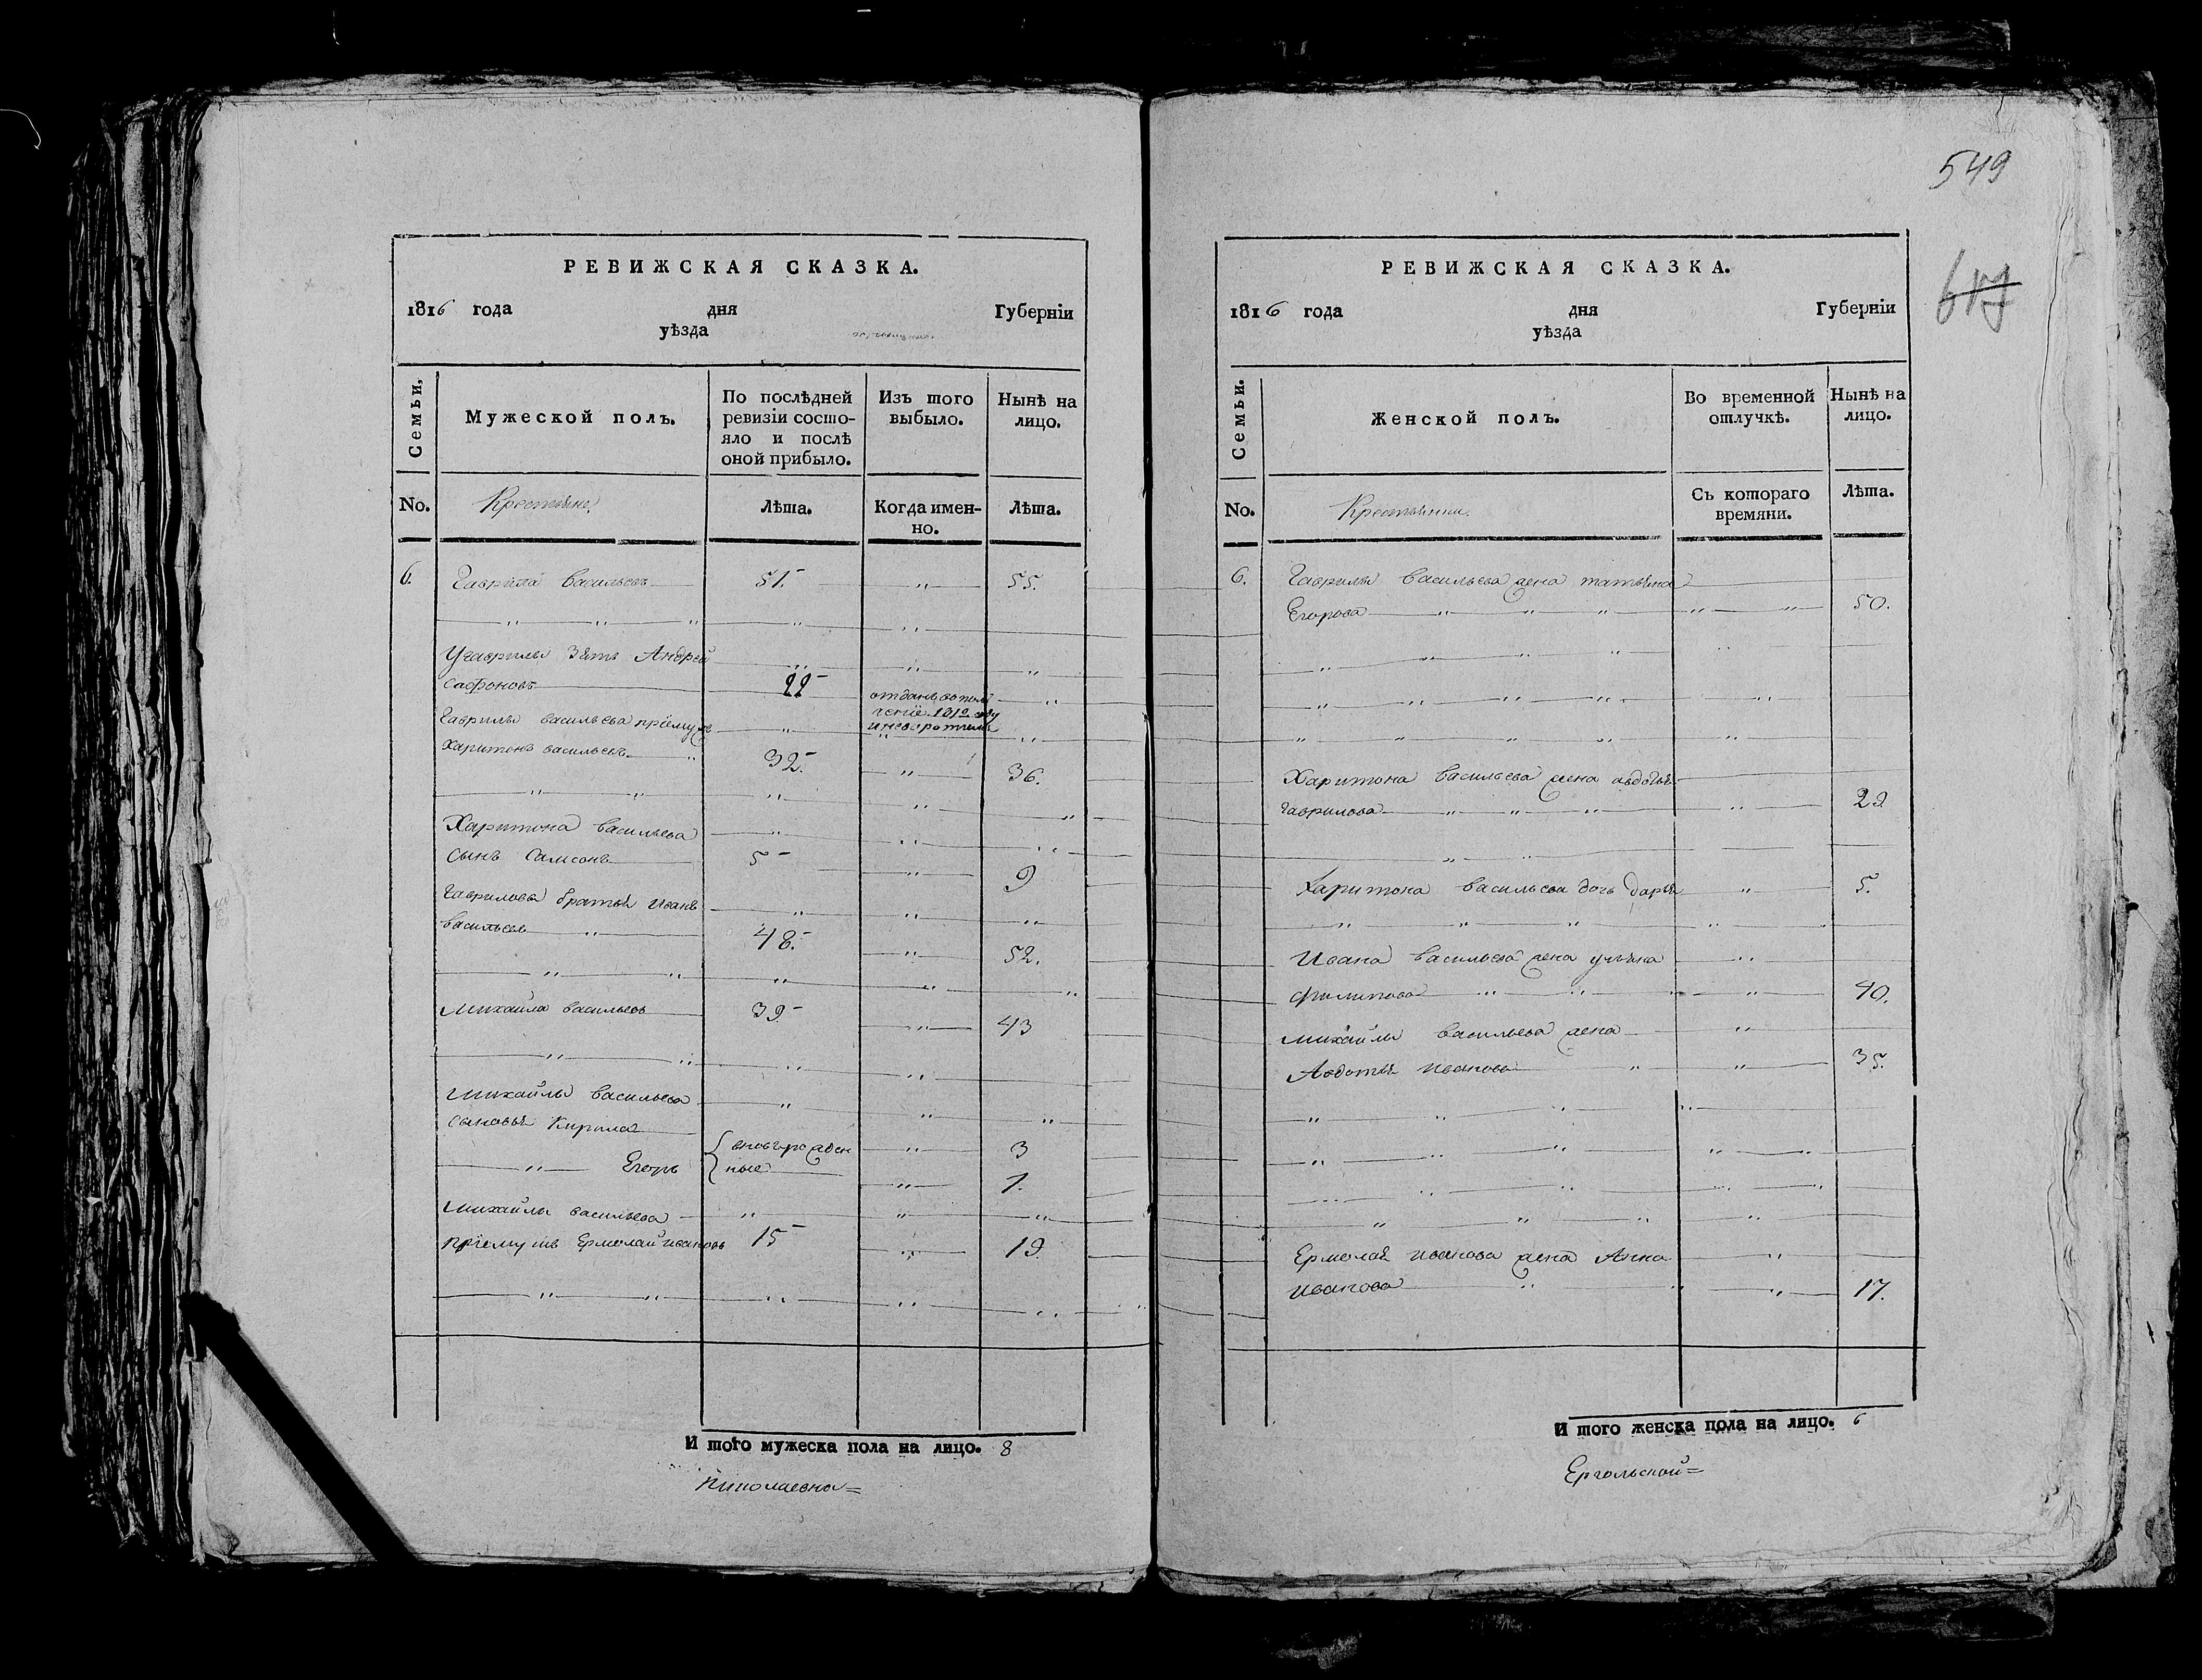 РЕВИЖСКАЯ СКАЗКА.
1816 года дня Губернїи
уѣзда
Семьи,
Мужеской полъ.
По послѣдней ревизїи состо-
яло и послѣ
оной прибыло.
Изъ того выбыло.
Нынѣ на лицо.
No.
Крестьяне
Лѣта.
Когда имен-
но.
Лѣта.
6. Гаврила Васильевъ 51. " 55.
У гаврилы зять Андрей
Сафоновъ 22 отданъ в ополчение 1812 году
Гаврилы васильева прїемушъ
Харитонъ васильевъ 32. " 36.
Харитона васильева
сынъ Самсонъ 5 " 9
Гавриловы братья Иванъ
васильевъ 48. " 52.
Михайла васильевъ 39 " 43
Михайлы васильева
сыновья Кирила { вновьрожден " 3
" Егоръ ные " 1.
Михайлы васильева
прїемушъ Ермолай ивановъ 15 " 19.
И того мужеска пола на лицо. 8
Николаевна=
549
617
РЕВИЖСКАЯ СКАЗКА.
1816 года дня Губернїи
уѣзда
Семьи.
Женской полъ.
Во временной
отлучкѣ.
Нынѣ на
лицо.
No.
Крестьянки
Съ котораго
времяни.
Лѣта.
6. Гаврилы васильева жена татьяна
Егорова " " " " " 50.
Харитона васильева жена авдотья
гаврилова " " " " 29
Харитона васильева дочь дарья " 5.
Ивана васильева жена ульяна
филипова " " " " 40.
михайлы васильева жена "
Авдотья иванова " " 35.
Ермолая иванова жена Анна "
иванова " " " 17.
И того женска пола на лицо. 6
Ергольской=